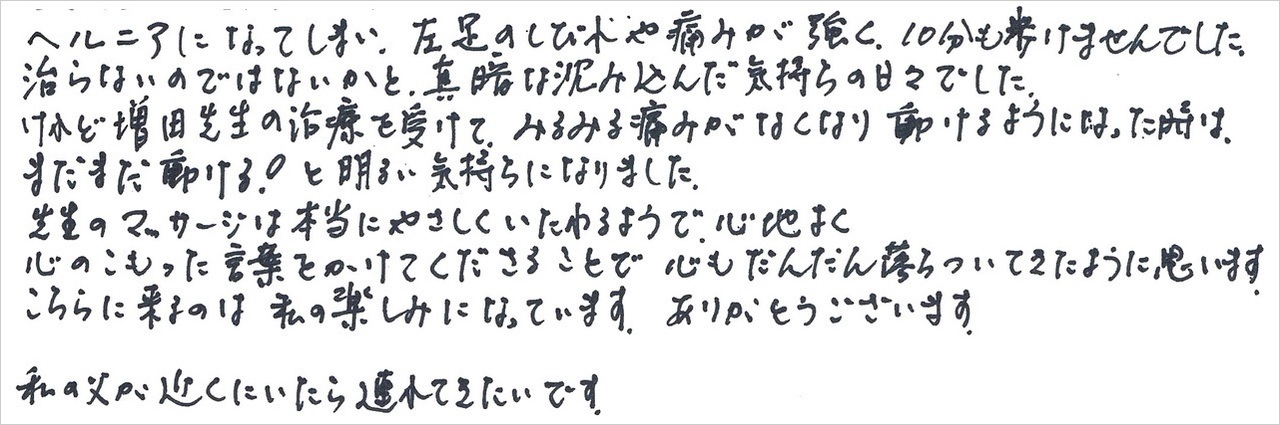 ヘルニアになってしまい、左足のしびれや痛みが強く、10分も歩けませんでした。
治らないのではないかと、真暗な沈み込んだ気持ちの日々でした。
けれど増田先生の治療を受けて、みるみる痛みがなくなり動けるようになった時は、
まだまだ動ける!と明るい気持ちになりました。
先生のマッサージは本当にやさしくいたわるようで、心地よく
心のこもった言葉をかけてくださることで心もだんだん落ちついてきたように思います。
こちらに来るのは私の楽しみになっています。ありがとうございます。
私の父が近くにいたら連れてきたいです。